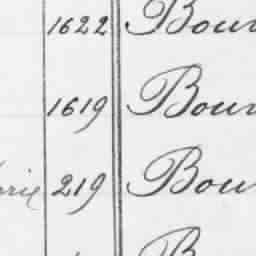 1622 Bour
1619 Bour
219 Bou
B